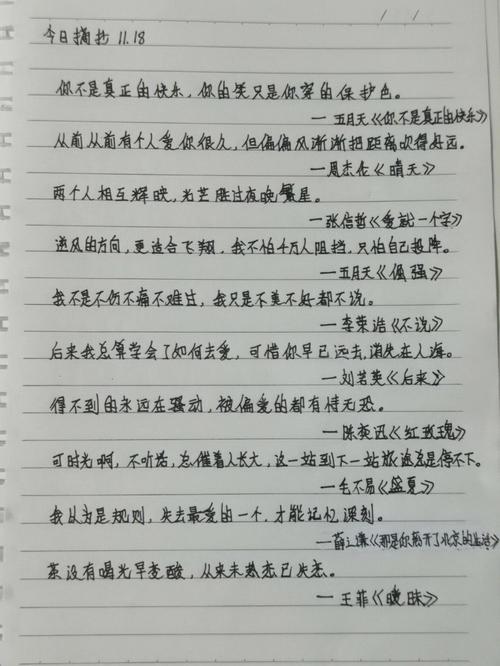 今日摘抄 11.18
你不是真正的快乐，你的笑只是你穿的保护色。
一 五月天《你不是真正的快乐》
从前从前有个人爱你很久，但偏偏风渐渐把距离吹得好远。
一周杰伦《晴天》
两个人相互辉映，光芒胜过夜晚繁星。
一张信哲《爱就一个字》
逆风的方向，更适合飞翔，我不怕千万人阻挡，只怕自己投降。
一五月天《倔强》
我不是不伤不痛不难过，我只是不美不好都不说。
一李荣浩《不说》
后来我总算学会了如何去爱，可惜你早已远去，消失在人海。
一刘若英《后来》
得不到的永远在骚动，被偏爱的都有恃无恐。
一陈奕迅《红玫瑰》
可时光啊，不听话，总催着人长大，这一站到下一站旅途总是停不下。
一毛不易《盛夏》
我以为是规则，失去最爱的一个，才能记忆深刻。
一薛之谦《那是你离开了北京的生活》
茶没有喝光早变酸，从来未热恋已失恋。
一王菲《暧昧》